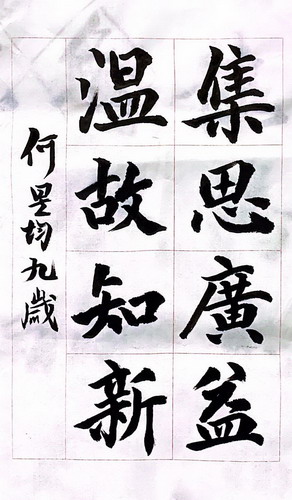 集思廣益
温故知新
何昱均九歲